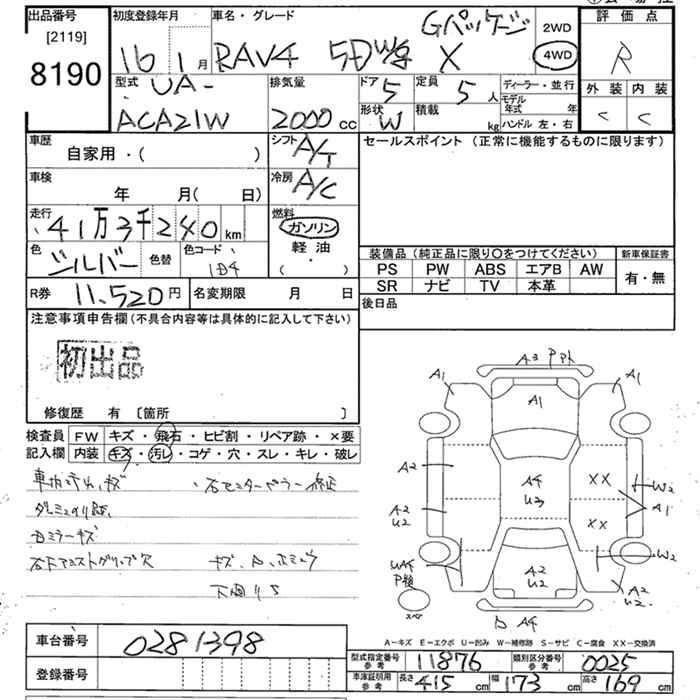 出品番号
[2119]
8190
初度登録年月
16 1 月
車名・グレード
RAV4 5Dwg X
Gパッケージ
2WD
4WD
評価点
R
外装 内装
C C
型式
UA-
ACA21W
排気量
2000 cc
ドア 5
形状 W
定員 5 人
積載 kg
ディーラー・並行
モデル年式 年
ハンドル 左・右
車歴
自家用・( )
シフト A/T
車検
年 月( 日)
冷房 A/C
走行
41万3千240 km
燃料
ガソリン
軽油
( ・ )
色
シルバー
色替
色コード
1D4
R券 11,520円
名変期限 月 日
セールスポイント (正常に機能するものに限ります)
装備品(純正品に限り〇をつけてください)
新車保証書
PS PW ABS エアB AW
SR ナビ TV 本革
有・無
後日品
注意事項申告欄(不具合内容等は具体的に記入して下さい)
初出品
修復歴 有 〔箇所 〕
検査員
記入欄
FW キズ・飛石・ヒビ割・リペア跡・×要
内装 キズ・汚レ・コゲ・穴・スレ・キレ・破レ
右ミラーキズ
右Fアシストグリップ欠
下廻りS
A3 Ppt
A1
A1
A1
A2
A4
U3
XX
W2
A2
U2
XX
A1
W2
A2
U2
A2
U2
A4
スペア
A-キズ E-エクボ U-凹み W-補修跡 S-サビ C-腐食 XX-交換済
車台番号
0281398
登録番号
型式指定番号 参考 11876
類別区分番号 参考 0025
車庫証明用 参考
長さ 415 cm
幅 173 cm
高さ 169 cm